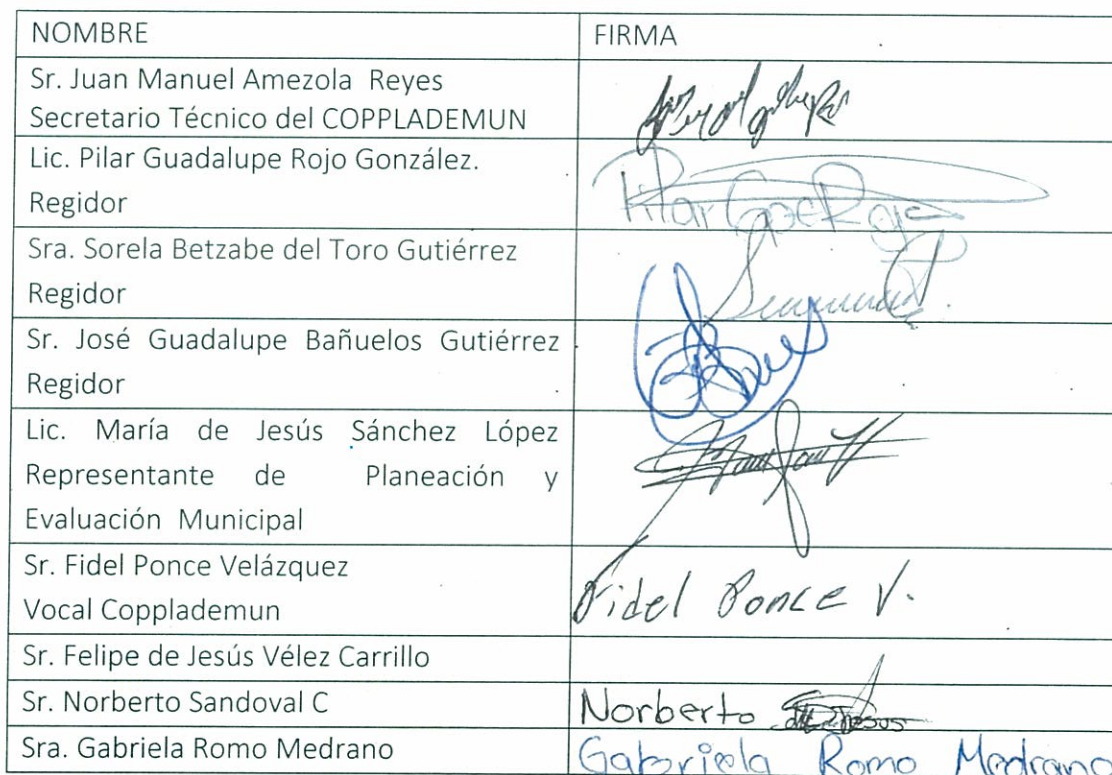 NOMBRE FIRMA
Sr. Juan Manuel Amezola Reyes
Secretario Técnico del COPPLADEMUN
Lic. Pilar Guadalupe Rojo González.
Regidor
Pilar Gpe Rojo
Sra. Sorela Betzabe del Toro Gutiérrez
Regidor
Sr. José Guadalupe Bañuelos Gutiérrez
Regidor
Lic. María de Jesús Sánchez López
Representante de Planeación y
Evaluación Municipal
Sr. Fidel Ponce Velázquez
Vocal Copplademun
Fidel Ponce V.
Sr. Felipe de Jesús Vélez Carrillo
Sr. Norberto Sandoval C Norberto
Sra. Gabriela Romo Medrano Gabriela Romo Medrano